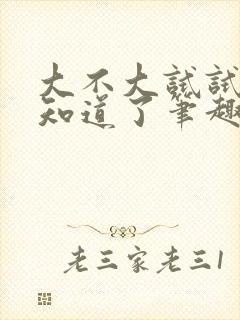 大不大试试
知道了笔趣
老三家老三1